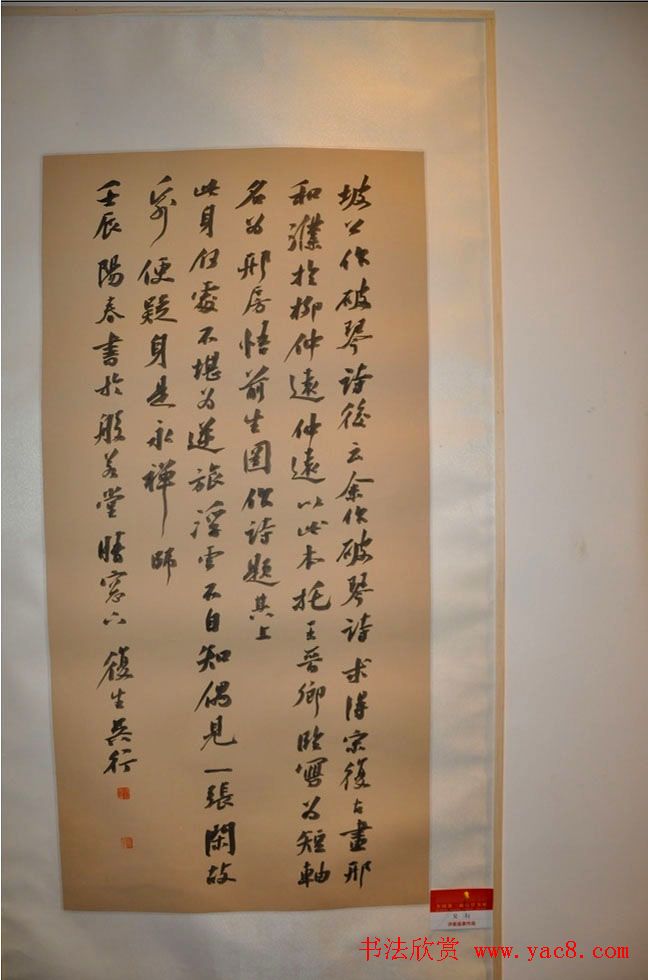 坡公作破琴詩後云余作破琴詩求得宋復古畫邢
和璞於柳仲遠仲遠以此本托王晉卿臨寫為短軸
名為邢房悟前生圖作詩題其上
此身何處不堪為逆旅浮雲不自知偶見一張閑故
紙便疑身是永禪師
壬辰陽春書於般若堂晴窗下復生吳行
吴行
书法欣赏 www.yac8.com